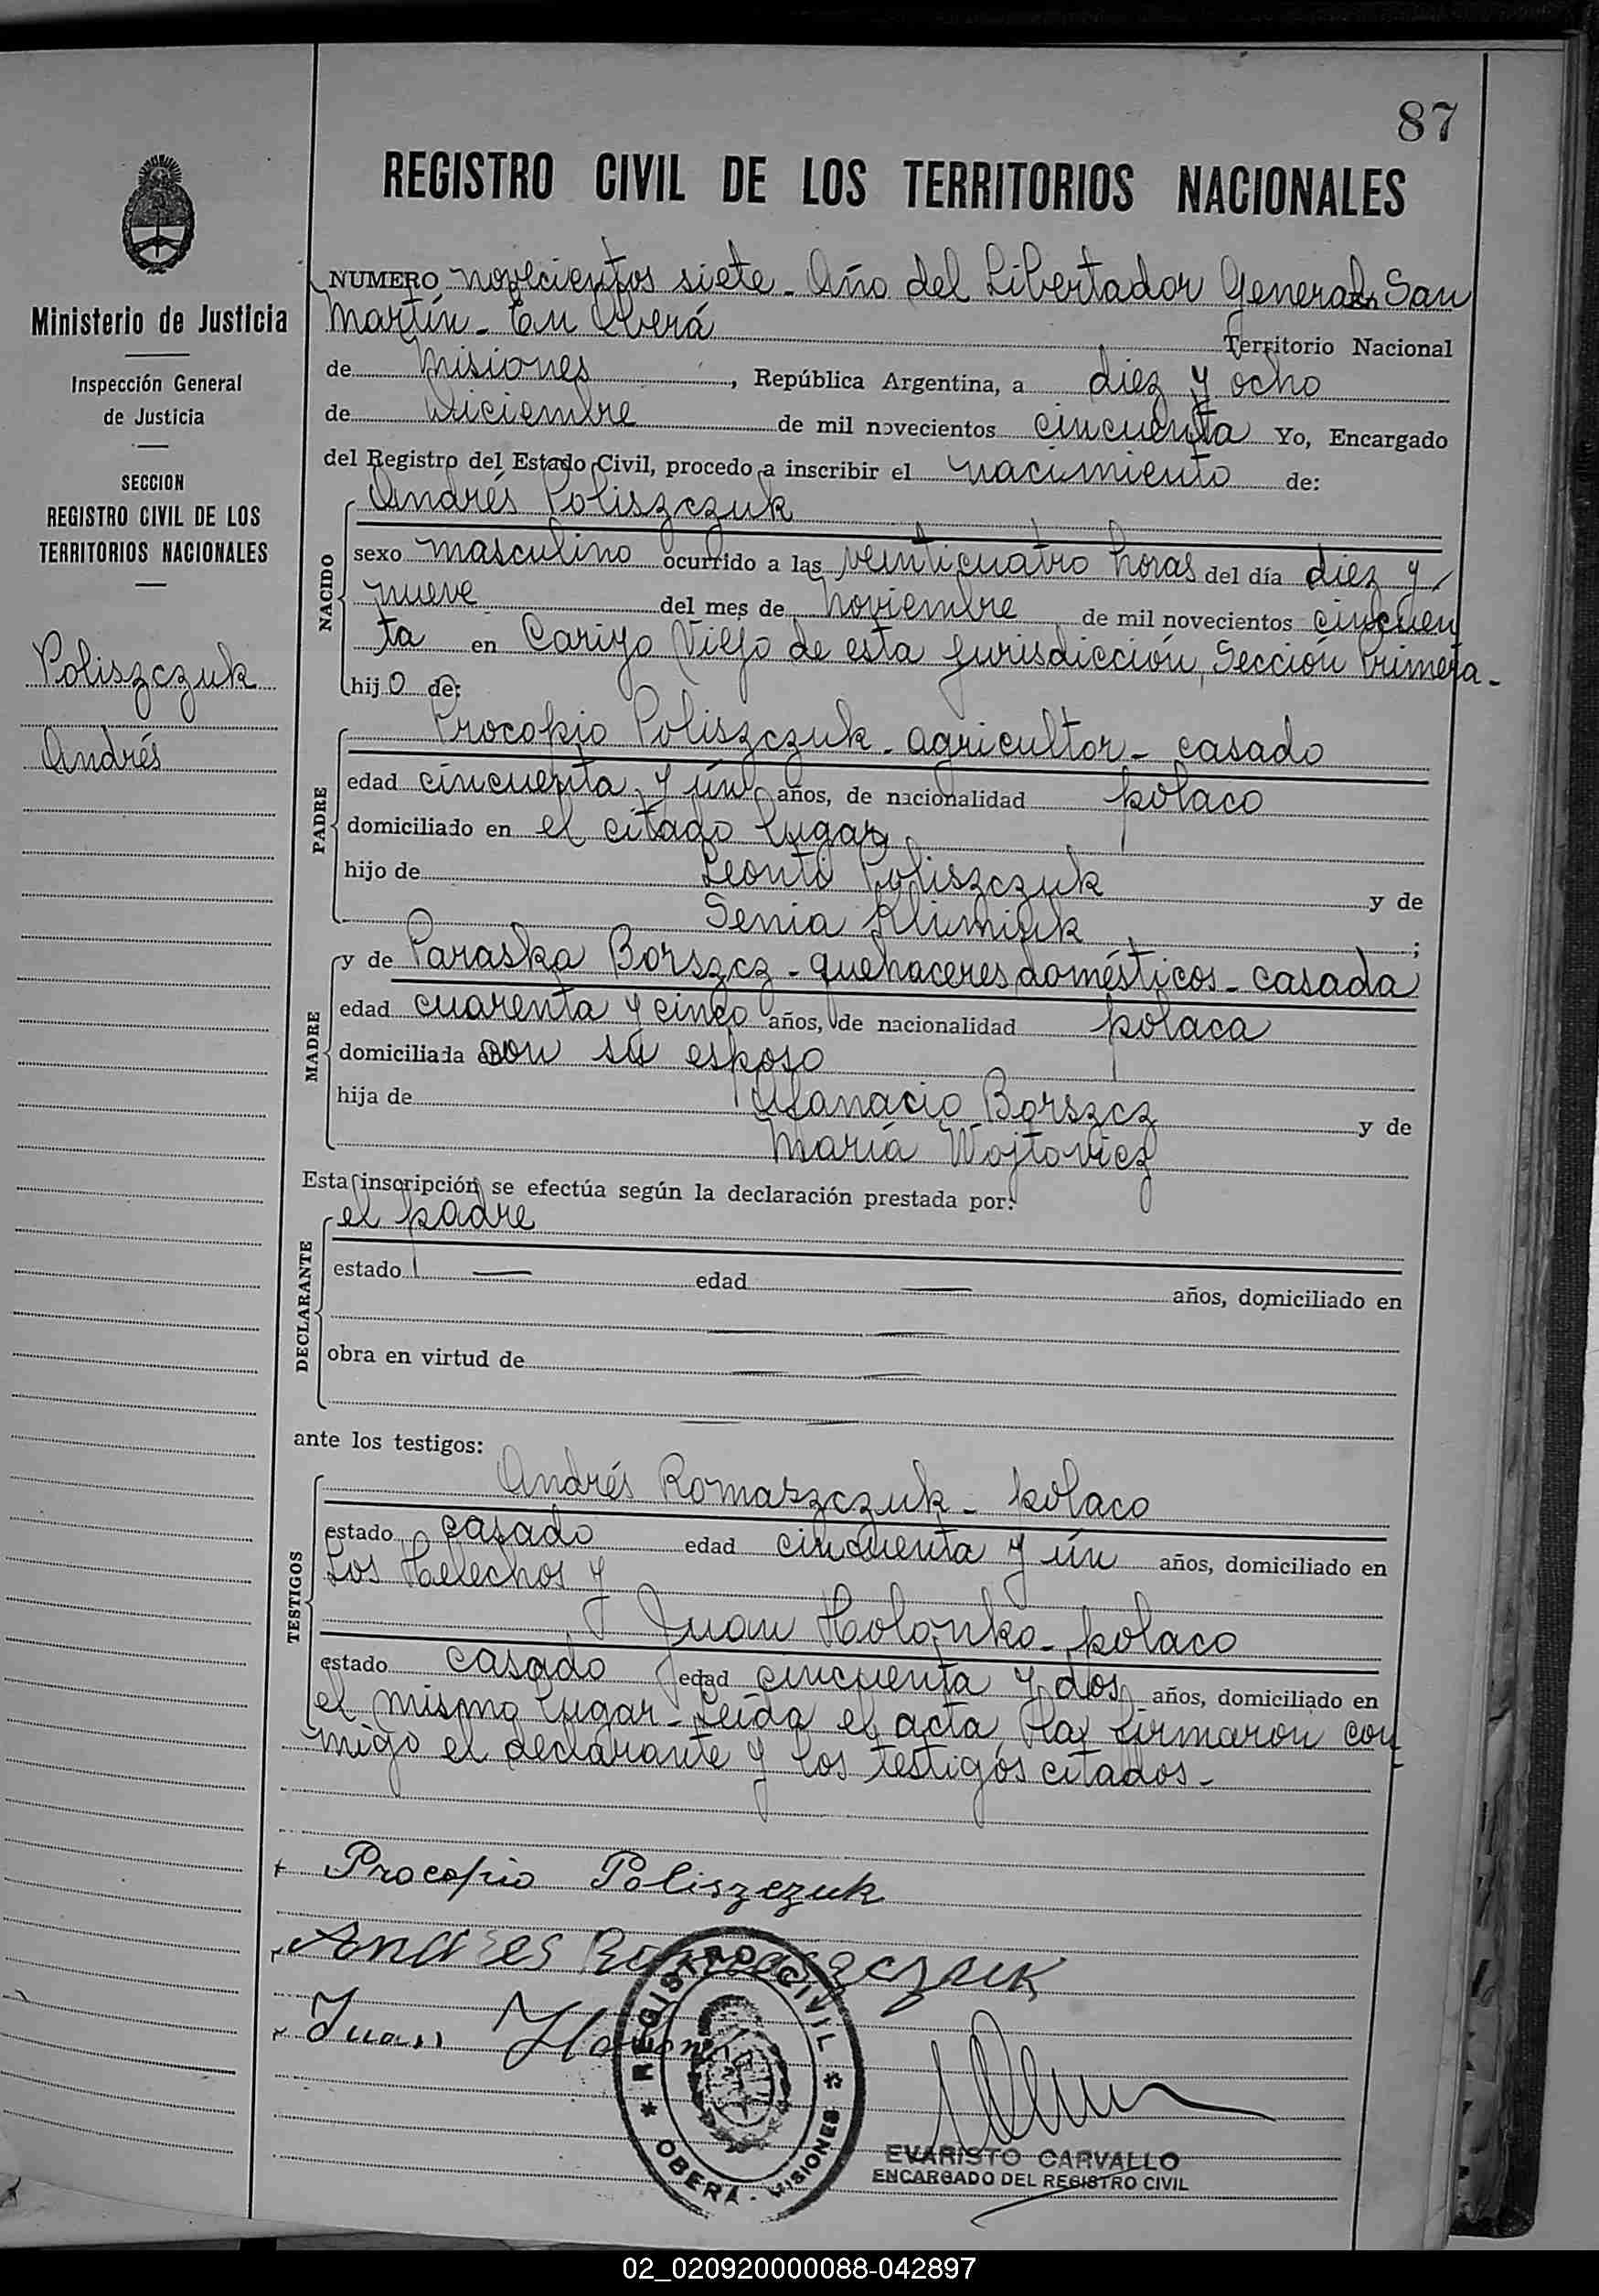 87
REGISTRO CIVIL DE LOS TERRITORIOS NACIONALES
Ministerio de Justicia
Inspección General
de Justicia
SECCION
REGISTRO CIVIL DE LOS
TERRITORIOS NACIONALES
Poliszczuk
Andrés
NUMERO novecientos siete - Año del Libertador General San
Martín - En Oberá Territorio Nacional
de Misiones, República Argentina, a diez y ocho
de Diciembre de mil novecientos cincuenta Yo, Encargado
del Registro del Estado Civil, procedo a inscribir el nacimiento de:
NACIDO
Andrés Poliszczuk
sexo masculino ocurrido a las veinticuatro horas del día diez y
nueve del mes de Noviembre de mil novecientos cincuen
ta en Cariyo Viejo de esta jurisdicción, Sección Primera -
hijo de:
PADRE
Procopio Poliszczuk - agricultor - casado
edad cincuenta y ún años, de nacionalidad polaco
domiciliado en el citado lugar
hijo de Leonto Poliszczuk y de
Senia ;
MADRE
y de Paraska Borszcz - quehaceres domésticos - casada
edad cuarenta y cinco años, de nacionalidad polaca
domiciliada con su esposo
hija de Afanacio Borszcz y de
María Wojtovicz
Esta inscripción se efectúa según la declaración prestada por:
DECLARANTE
el padre
estado — edad — años, domiciliado en
— —
obra en virtud de — —
— —
ante los testigos:
TESTIGOS
Andrés Romaszczuk - polaco
estado casado edad cincuenta y ún años, domiciliado en
Los Helechos y
Juan Holonko - polaco
estado casado edad cincuenta y dos años, domiciliado en
el mismo lugar - Leída el acta, la firmaron con
migo el declarante y los testigos citados -
Procopio Poliszczuk
Andres Romaszczuk
Juan
REGISTRO CIVIL
* OBERA - MISIONES *
EVARISTO CARVALLO
ENCARGADO DEL REGISTRO CIVIL
02_020920000088-042897